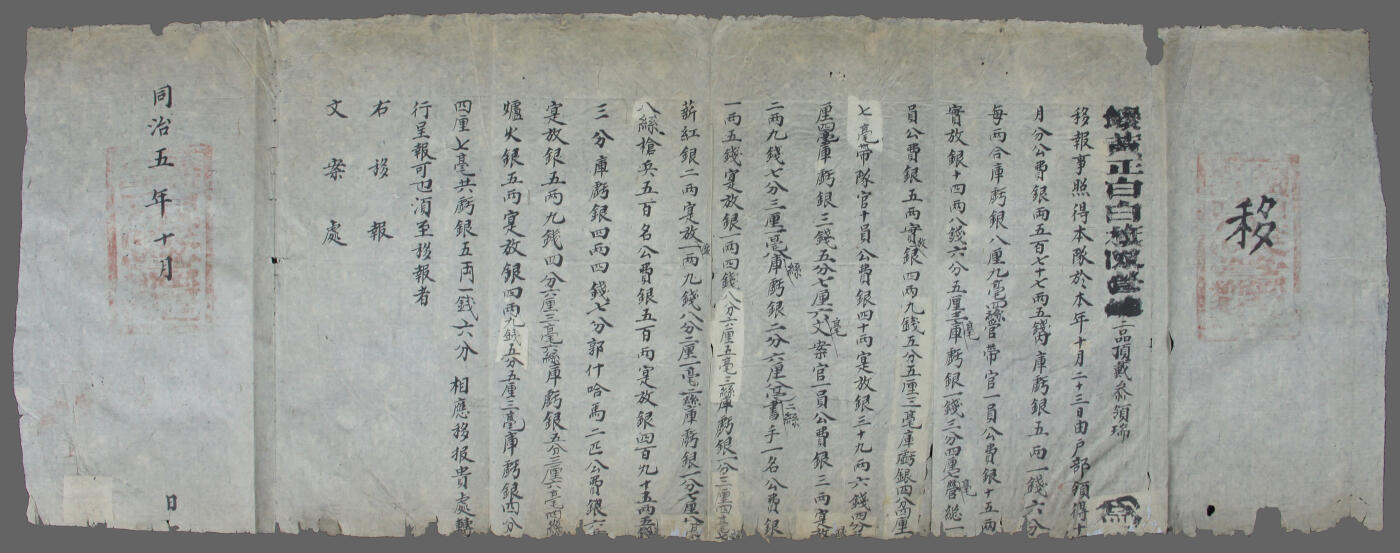 移
鑲黃正白白旗 三品頂戴參領瑞 為
移報事照得本隊於本年十月二十三日由戶部領得十
月分公費銀兩五百七十七兩五錢內庫虧銀五兩一錢六分
每兩合庫虧銀八厘九毫四絲管帶官一員公費銀十五兩
實放銀十四兩八錢六分五厘三毫庫虧銀一錢三分四厘七毫營總一
員公費銀五兩實放銀四兩九錢五分五厘三毫庫虧銀四分四厘
七毫帶隊官十員公費銀四十兩寔放銀三十九兩六錢四分
厘四毫庫虧銀三錢五分七厘六毫文案官一員公費銀三兩寔放
二兩九錢七分三厘一毫八絲庫虧銀二分六厘八毫二絲書手一名公費銀
一兩五錢寔放銀一兩四錢八分六厘五毫三絲庫虧銀一分三厘四毫七
薪紅銀二兩寔放銀一兩九錢八分二厘一毫二絲庫虧銀一分七厘八毫
八絲槍兵五百名公費銀五百兩寔放銀四百九十五兩五錢
三分庫虧銀四兩四錢七分郭什哈馬二匹公費銀六
寔放銀五兩九錢四分六厘三毫六絲庫虧銀五分三厘六毫四絲
爐火銀五兩寔放銀四兩九錢五分五厘三毫庫虧銀四分
四厘七毫共虧銀五兩一錢六分 相應移报貴處轉
行呈報可也須至移報者
右移報
文案處
同治五年十月
日